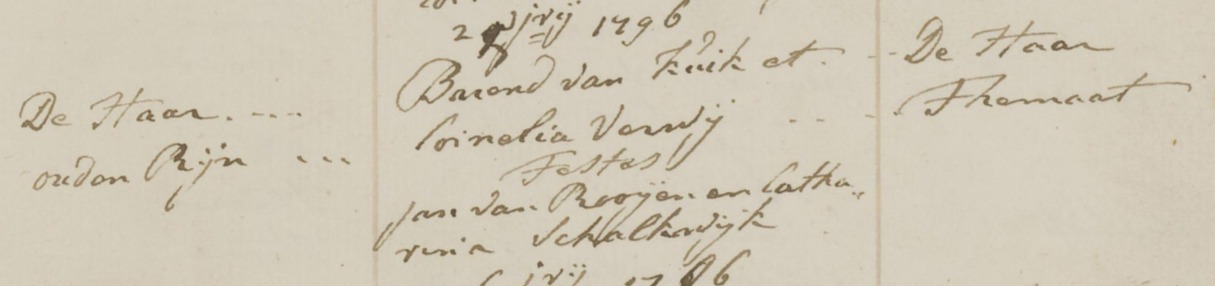 De Haar. ---
ouden Rijn ---
2 jvij 1796
Barend van Kuik et.
Cornelia Verwij
Testes
Jan van Rooijen en Catha„
rina Schalkwijk
jvij 1796
- De Haar
- - - Themaat